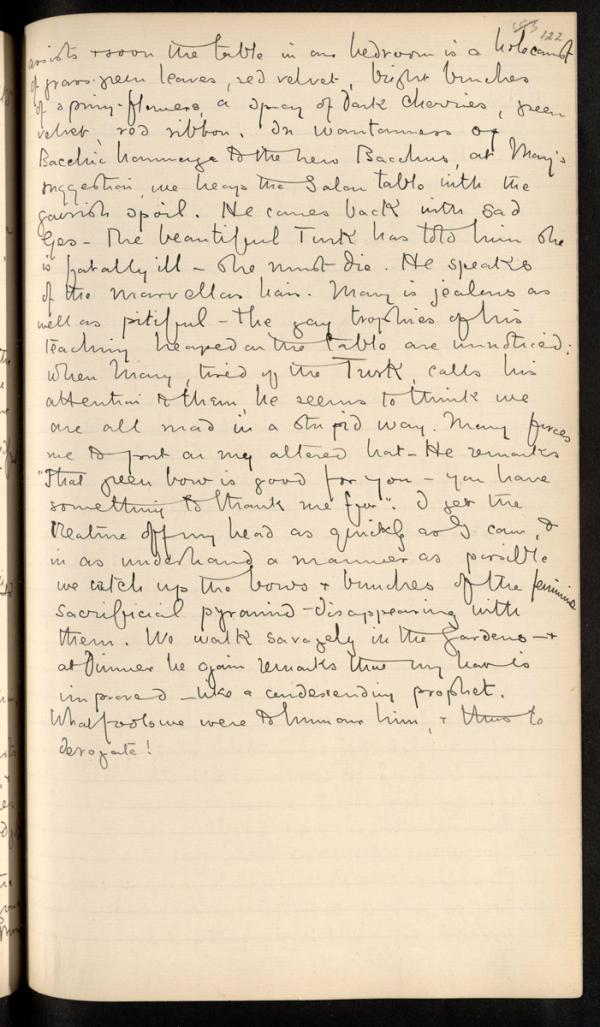 122
assists & soon the table in our bedroom is a holocaust
of grass-green leaves, red velvet, bright bunches
of spring-flowers, a spray of dark cherries, green
velvet, red ribbon. In wantonness of
Bacchic hommage to the new Bacchus, at Mary's
suggestion, we heap the Salon table with the
garish spoil. He comes back with sad
eyes – The beautiful Turk has told him she
is fatally ill – she must die. He speaks
of the marvellous hair. Mary is jealous as
well as pitiful – the gay trophies of his
teaching heaped on the table are unnoticed:
when Mary, tired of the Turk, calls his
attention to them he seems to think we
are all mad in a stupid way. Mary forces
me to put on my altered hat – He remarks
"That green bow is good for you – you have
something to thank me for". I get the
creature off my head as quickly as I can, &
in as underhand a manner as possible
we catch up the bows & bunches of the feminine
sacrificial pyramid – disappearing with
them. We walk savagely in the Gardens – &
at Dinner he again remarks that my hat is
improved – like a condescending prophet.
What fools we were to humour him, & thus to
derogate!